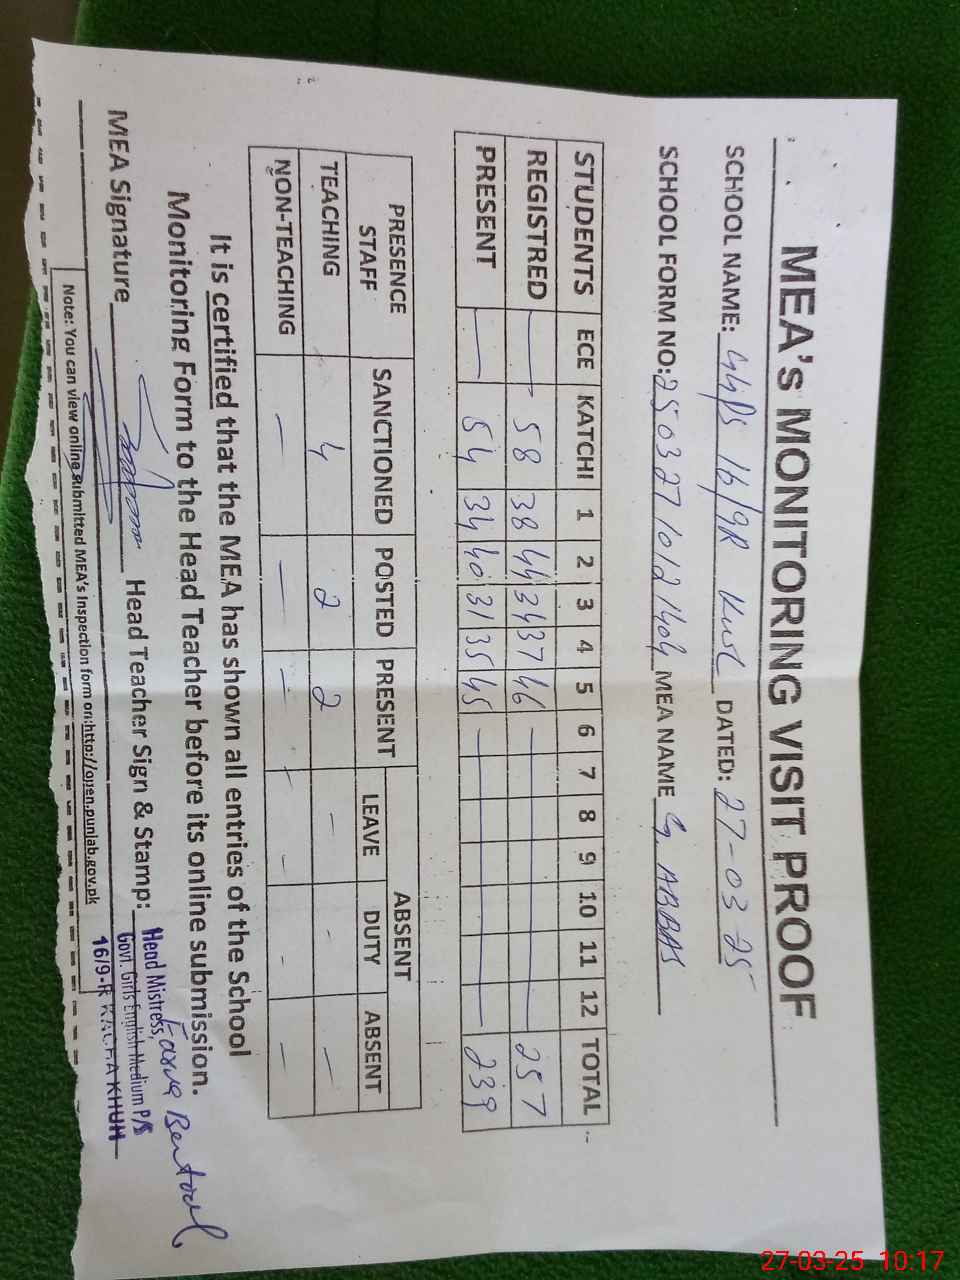 MEA's MONITORING VISIT PROOF
SCHOOL NAME: GGPS 16/9R DATED: 27-03-25
SCHOOL FORM NO: MEA NAME G. ABBAS
STUDENTS ECE KATCHI 1 2 3 4 5 6 7 8 9 10 11 12 TOTAL
REGISTRED — 58 38 44 34 37 46 — 257
PRESENT — 54 34 40 31 35 45 — 239
PRESENCE STAFF SANCTIONED POSTED PRESENT ABSENT
LEAVE DUTY ABSENT
TEACHING 4 2 2 — - —
NON-TEACHING — — — - - —
It is certified that the MEA has shown all entries of the School
Monitoring Form to the Head Teacher before its online submission.
MEA Signature Head Teacher Sign & Stamp:
Head Mistress,
Govt. Girls English Medium P/S
16/9-R KACHA KHUH
Note: You can view online submitted MEA's Inspection form on:http://open.punjab.gov.pk
27-03-25 10:17